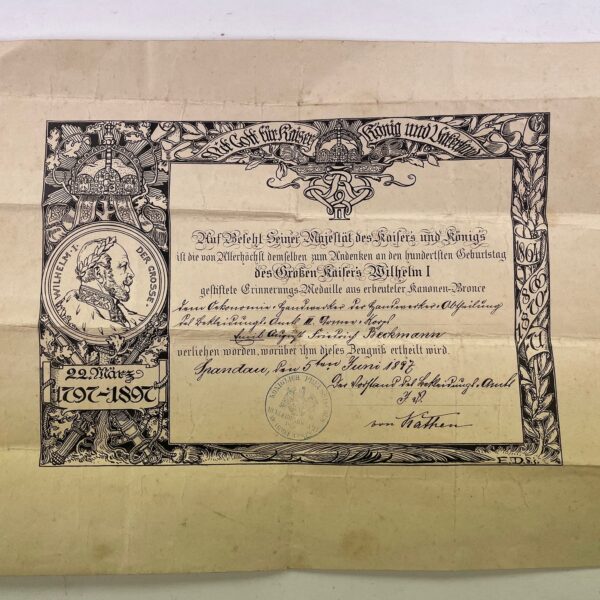 Mit Gott für Kaiser, König und Vaterland
KAIS. WILHELM · I · DER GROSSE
22. März
1797-1897
1864
1866
1870
71
Auf Befehl Seiner Majestät des Kaisers und Königs
ist die von Allerhöchst demselben zum Andenken an den hundertsten Geburtstag
des Großen Kaisers Wilhelm I
gestiftete Erinnerungs-Medaille aus erbeuteter Kanonen-Bronce
dem Oekonomie-Handwerker der Handwerker-Abtheilung
des Bekleidungs-Amts III. Armee-Korps
Ernst August Friedrich Beckmann
verliehen worden, worüber ihm dieses Zeugniß ertheilt wird.
Spandau, den 5ten Juni 1897
Der Vorstand des Bekleidungs-Amts
I. V.
von Kathen
E.D.